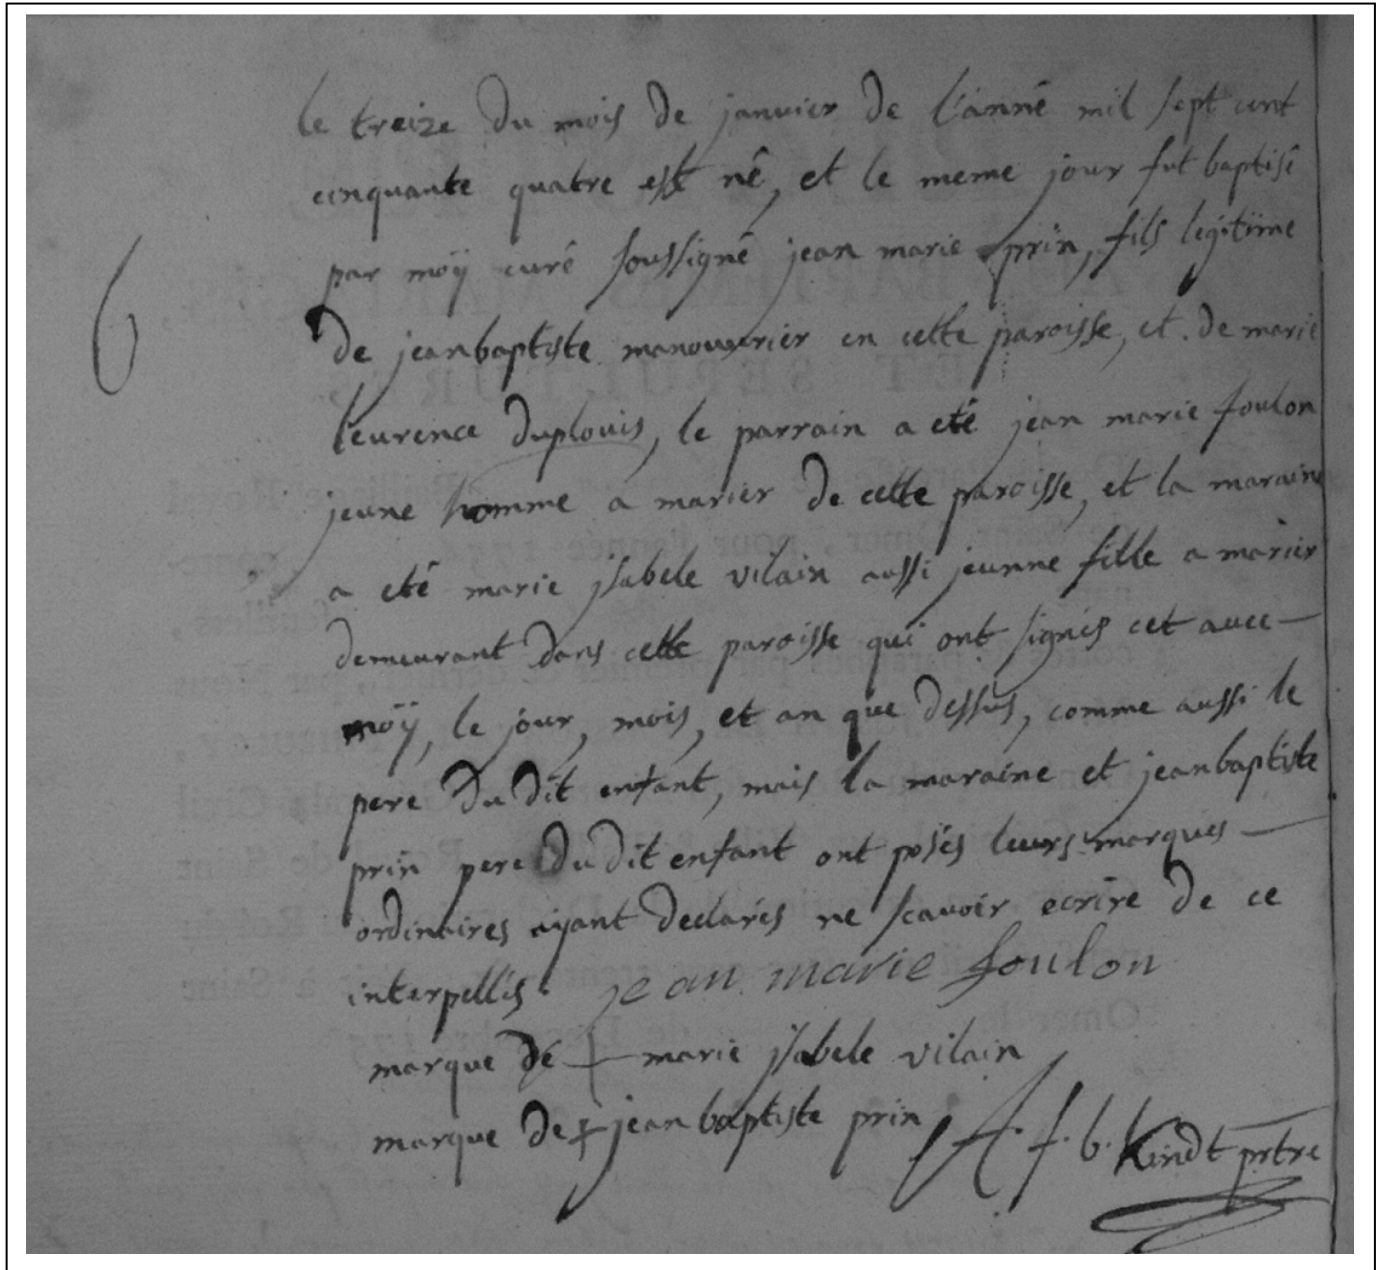 le treize du mois de janvier de l'année mil sept cent
cinquante quatre est né, et le meme jour fut baptisé
par moÿ curé soussigné jean marie prin, fils legitime
de jeanbaptiste manouvrier en cette paroisse, et de marie
leurence duplouis, le parrain a eté jean marie foulon
jeune homme a marier de cette paroisse, et la maraine
a eté marie jsabele vilain aussi jeunne fille a marier
demeurant dans cette paroisse qui ont signés cet avec
moÿ, le jour, mois, et an que dessus, comme aussi le
pere du dit enfant, mais la maraine et jeanbaptiste
prin pere du dit enfant ont posés leurs marques
ordinaires aÿant declarés ne scavoir ecrire de ce
interpellés. jean marie foulon
marque de marie jsabele vilain
marque de jeanbaptiste prin A. f. b. Kindt prtre
6